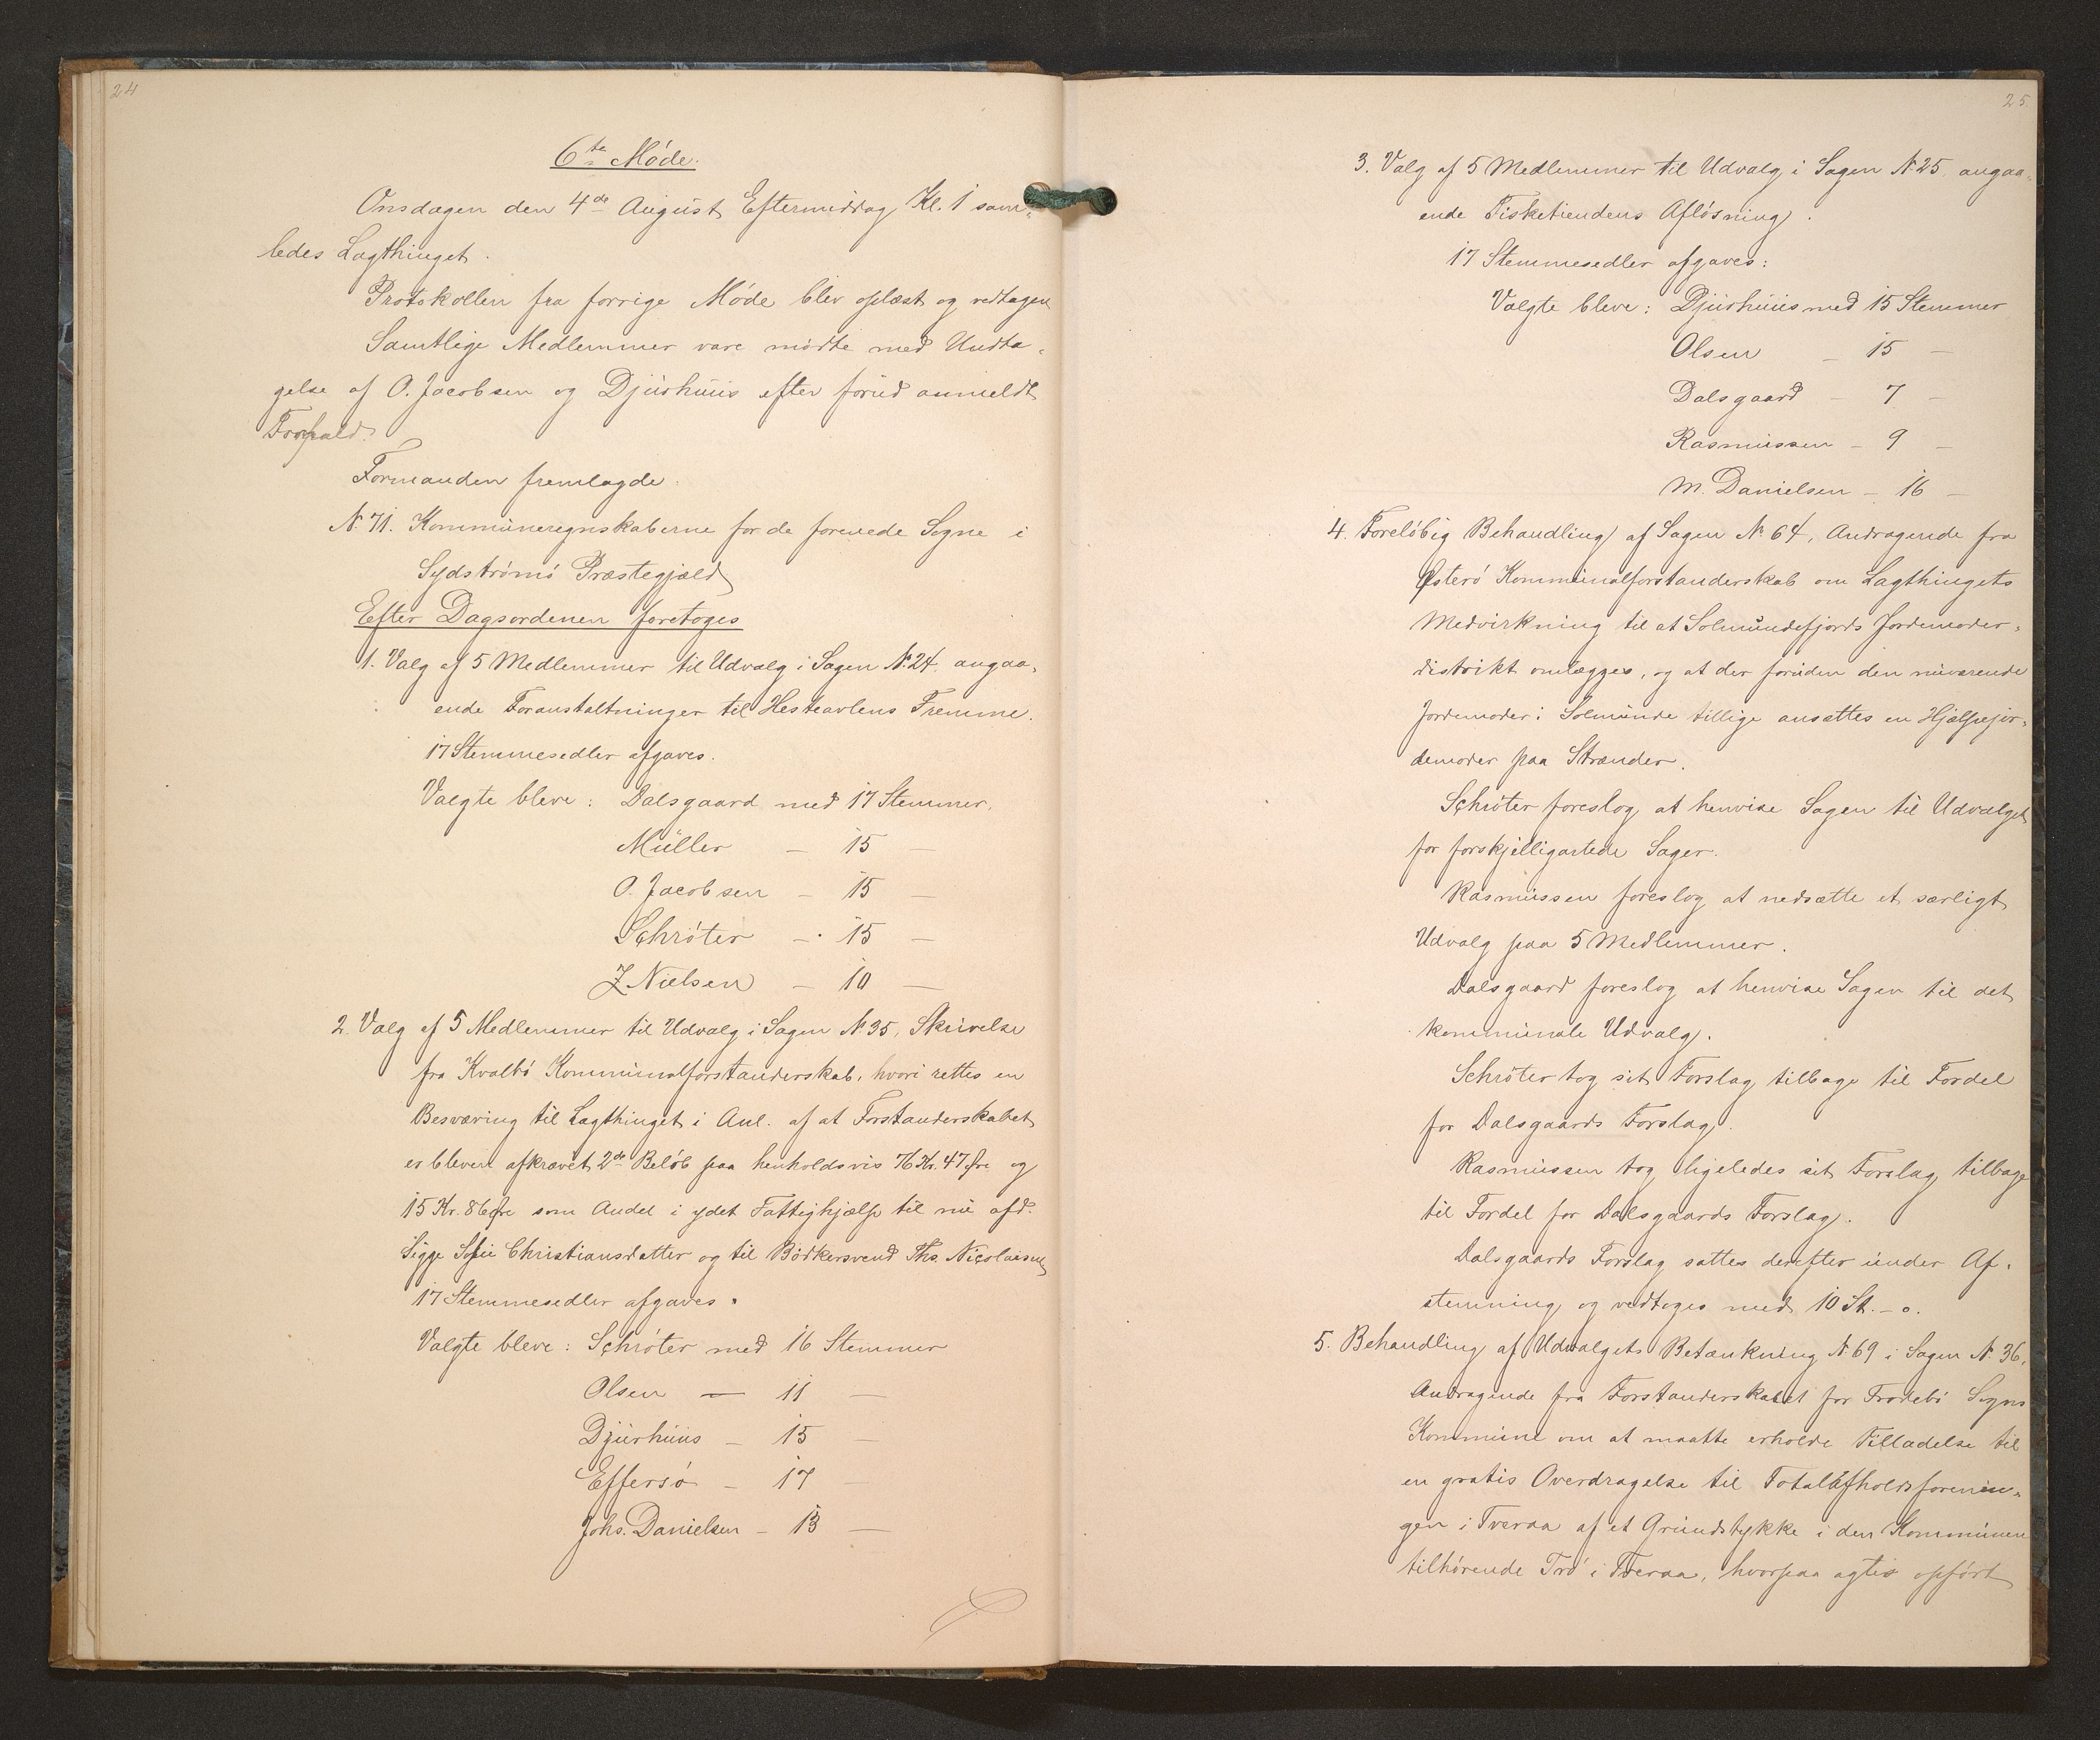 24
6te Møde.
Onsdagen den 4de August Eftermiddag Kl. 1 sam-
ledes Lagthinget.
Protokollen fra forrige Møde blev oplæst og vedtagen
Samtlige Medlemmer vare mødte med Undta-
gelse af O. Jacobsen og Djurhuus efter forud anmeldt
Forfald.
Formanden fremlagde:
No 71. Kommuneregnskaberne for de forenede Sogne i
Sydstrømø Præstegjæld
Efter Dagsordenen foretoges
1. Valg af 5 Medlemmer til Udvalg i Sagen No 24. angaa-
ende Foranstaltninger til Hesteavlens Fremme.
17 Stemmesedler afgaves.
Valgte bleve: Dalsgaard med 17 Stemmer.
Müller — 15 —
O. Jacobsen — 15 —
Schrøter — 15 —
Z Nielsen — 10 —
2. Valg af 5 Medlemmer til Udvalg i Sagen No 35, Skrivelse
fra Kvalbø Kommunalforstanderskab, hvori rettes en
Besværing til Lagthinget i Anl. af at Forstanderskabet
er bleven afkrævet 2de Beløb paa henholdsvis 76 Kr. 47 Øre og
15 Kr. 86 Øre som Andel i ydet Fattighjælp til nu afd.
Sigge Sofie Christiansdatter og til Bødkersvend Ths. Nicolaisen
17 Stemmesedler afgaves.
Valgte bleve: Schrøter med 16 Stemmer
Olsen — 11 —
Djurhuus — 15 —
Effersø — 17 —
Johs. Danielsen — 13 —
25
3. Valg af 5 Medlemmer til Udvalg i Sagen No 25, angaa-
ende Fisketiendens Afløsning.
17 Stemmesedler afgaves:
Valgte bleve: Djurhuus med 15 Stemmer
Olsen — 15 —
Dalsgaard — 7 —
Rasmussen — 9 —
M. Danielsen — 16 —
4. Foreløbig Behandling af Sagen No 64, Andragende fra
Østerø Kommunalforstanderskab om Lagthingets
Medvirkning til at Solmundefjords Jordemoder-
distrikt omlægges, og at der foruden den nuværende
Jordemoder i Solmunde tillige ansættes en Hjælpejor-
demoder paa Strænder.
Schrøter foreslog at henvise Sagen til Udvalget
for forskjelligartede Sager.
Rasmussen foreslog at nedsætte et særligt
Udvalg paa 5 Medlemmer.
Dalsgaard foreslog at henvise Sagen til det
kommunale Udvalg.
Schrøter tog sit Forslag tilbage til Fordel
for Dalsgaards Forslag.
Rasmussen tog ligeledes sit Forslag tilbage
til Fordel for Dalsgaards Forslag.
Dalsgaards Forslag sattes derefter under Af-
stemning og vedtoges med 10 St. - 0.
5. Behandling af Udvalgets Betænkning No 69 i Sagen No 36,
Andragende fra Forstanderskabet for Frodebø Sogns
Kommune om at maatte erholde Tilladelse til
en gratis Overdragelse til Totalafholdsforenin-
gen i Tveraa af et Grundstykke i den Kommunen
tilhørende Trø i Tveraa, hvorpaa agtes opført